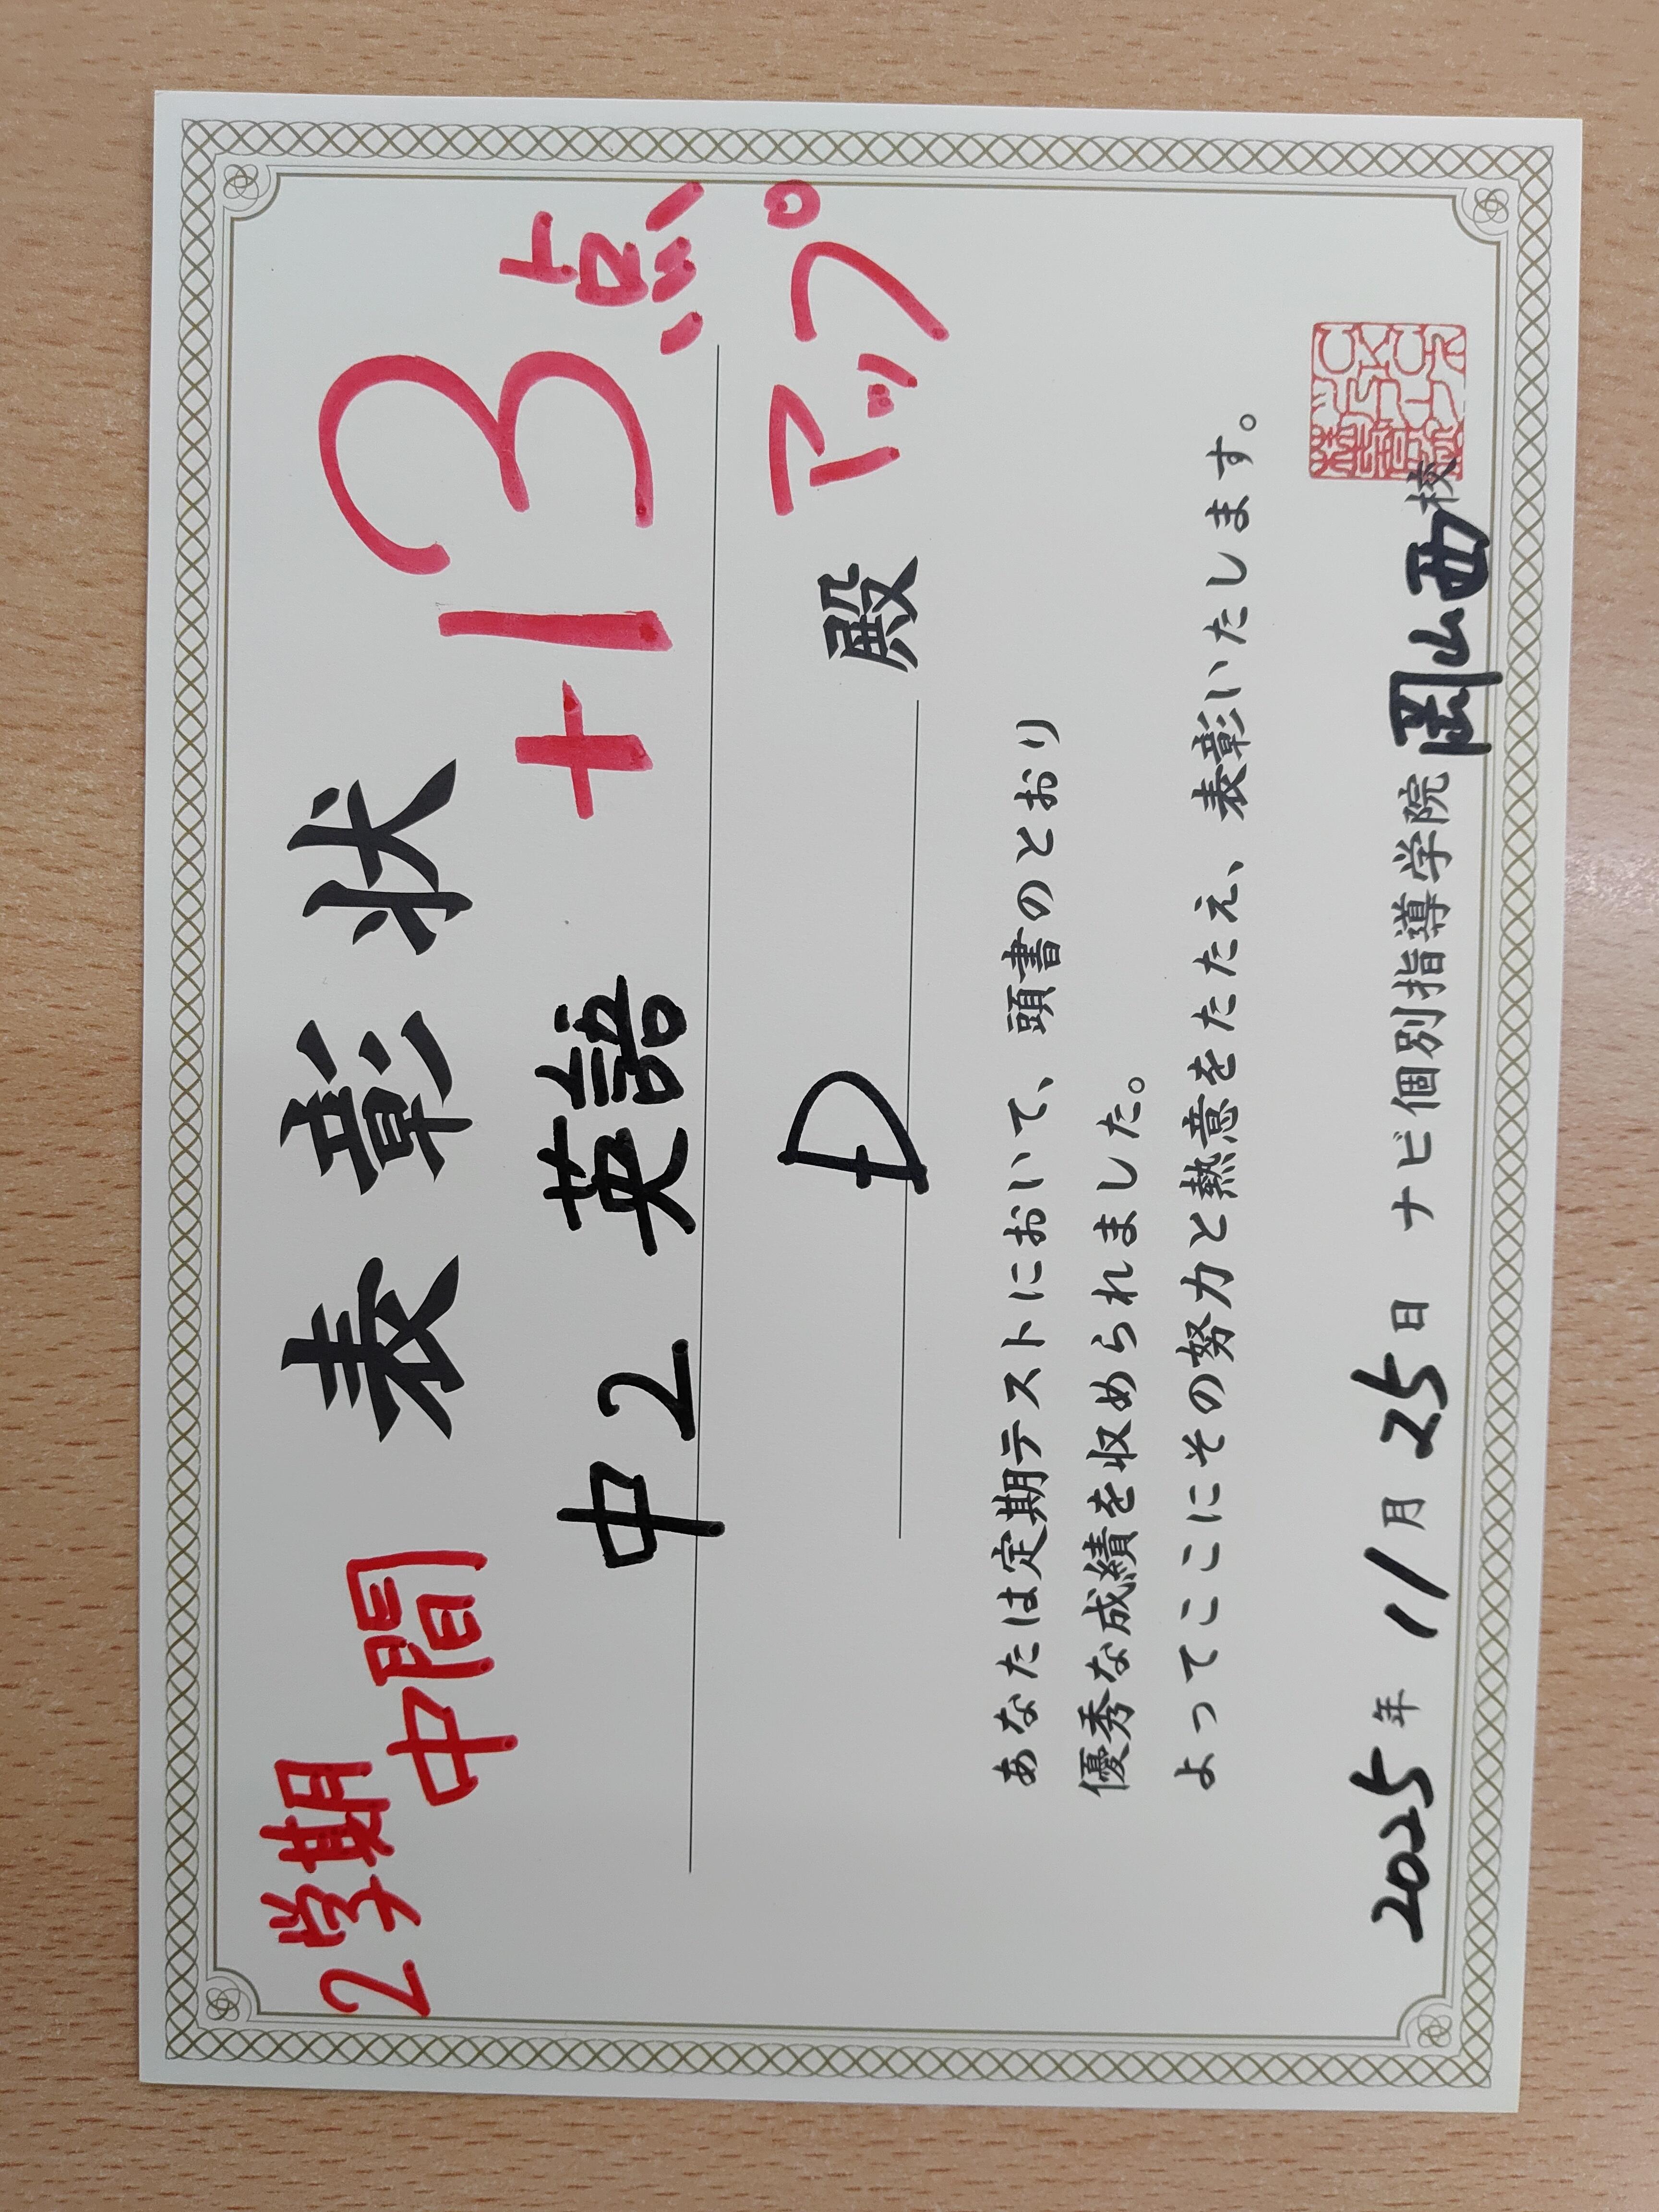 2学期
中間
表彰状
+13点
アップ
中2 英語
D 殿
あなたは定期テストにおいて、頭書のとおり
優秀な成績を収められました。
よってここにその努力と熱意をたたえ、表彰いたします。
2025年 11月 25日 ナビ個別指導学院 岡山西校